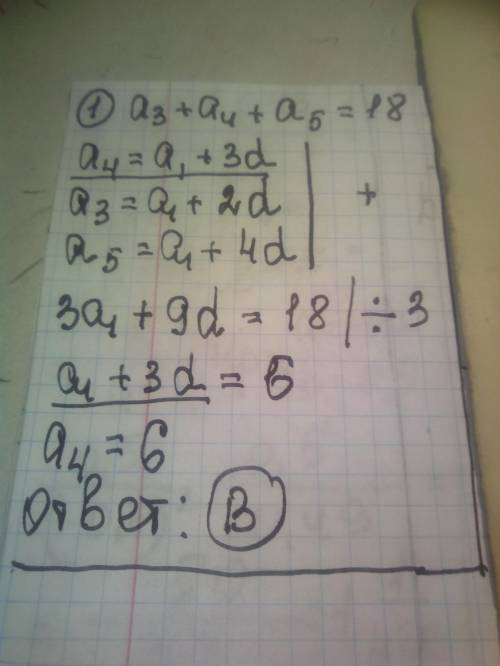 ① a₃ + a₄ + a₅ = 18
a₄ = a₁ + 3d
a₃ = a₁ + 2d | +
a₅ = a₁ + 4d
3a₁ + 9d = 18 | ÷ 3
a₁ + 3d = 6
a₄ = 6
Ответ: В